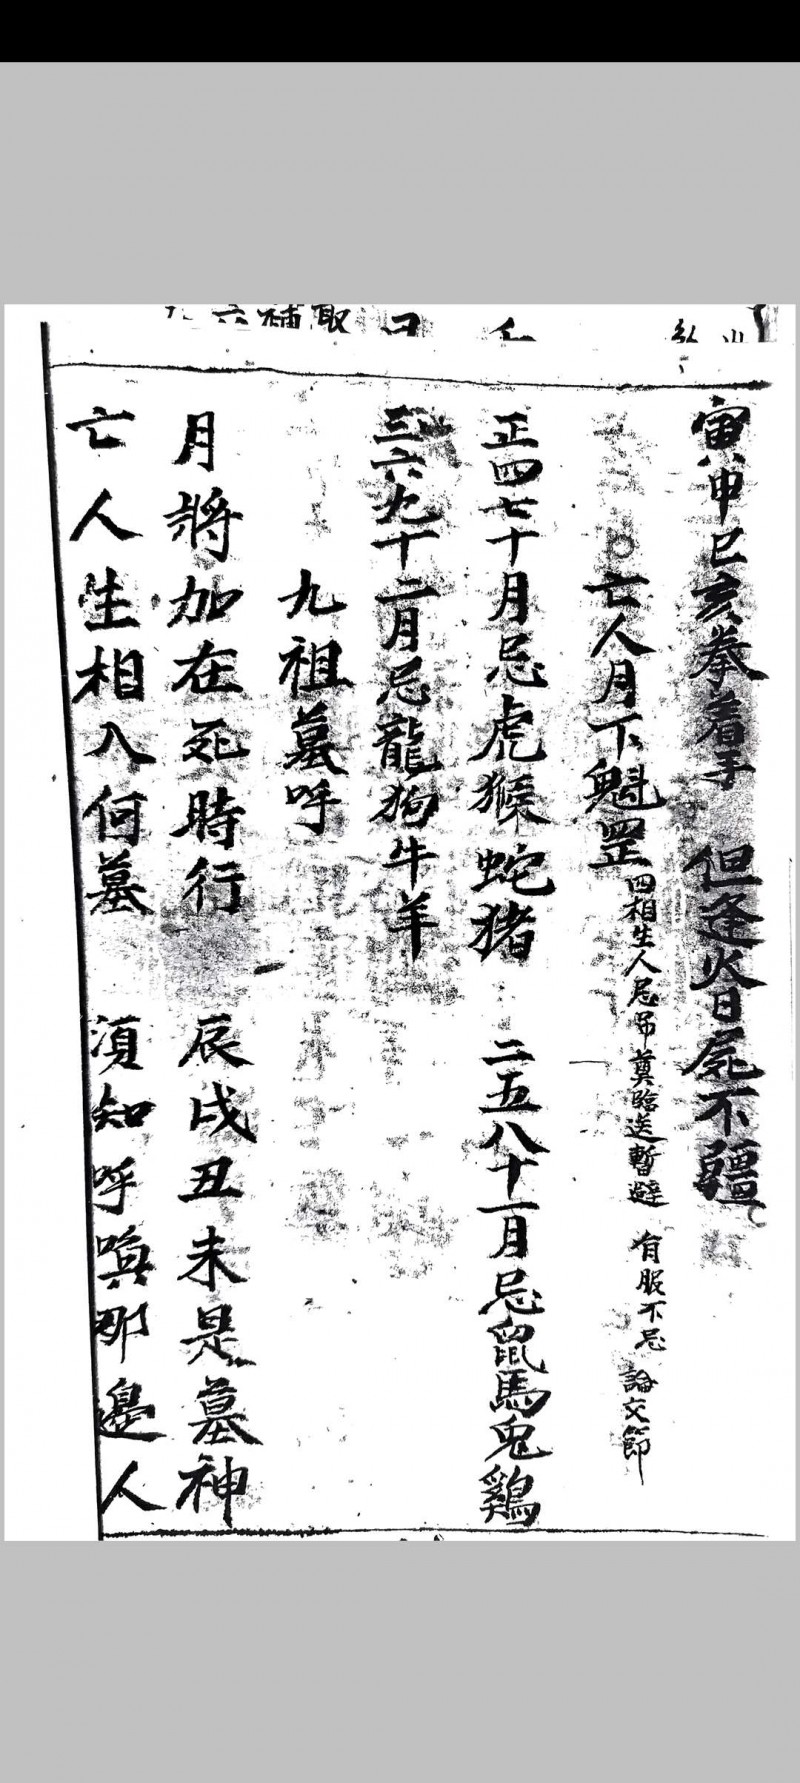 寅申巳亥拳着手　但逢昏日屍不殭
亡人月下魁罡 四相生人忌吊奠臨送暫避 有服不忌 論交節
正四七十月忌虎猴蛇猪　二五八十一月忌鼠馬兔鷄
三六九十二月忌龍狗牛羊
九祖墓呼
月將加在死時行　辰戌丑未是墓神
亡人生相入何墓　須知呼喚那邊人